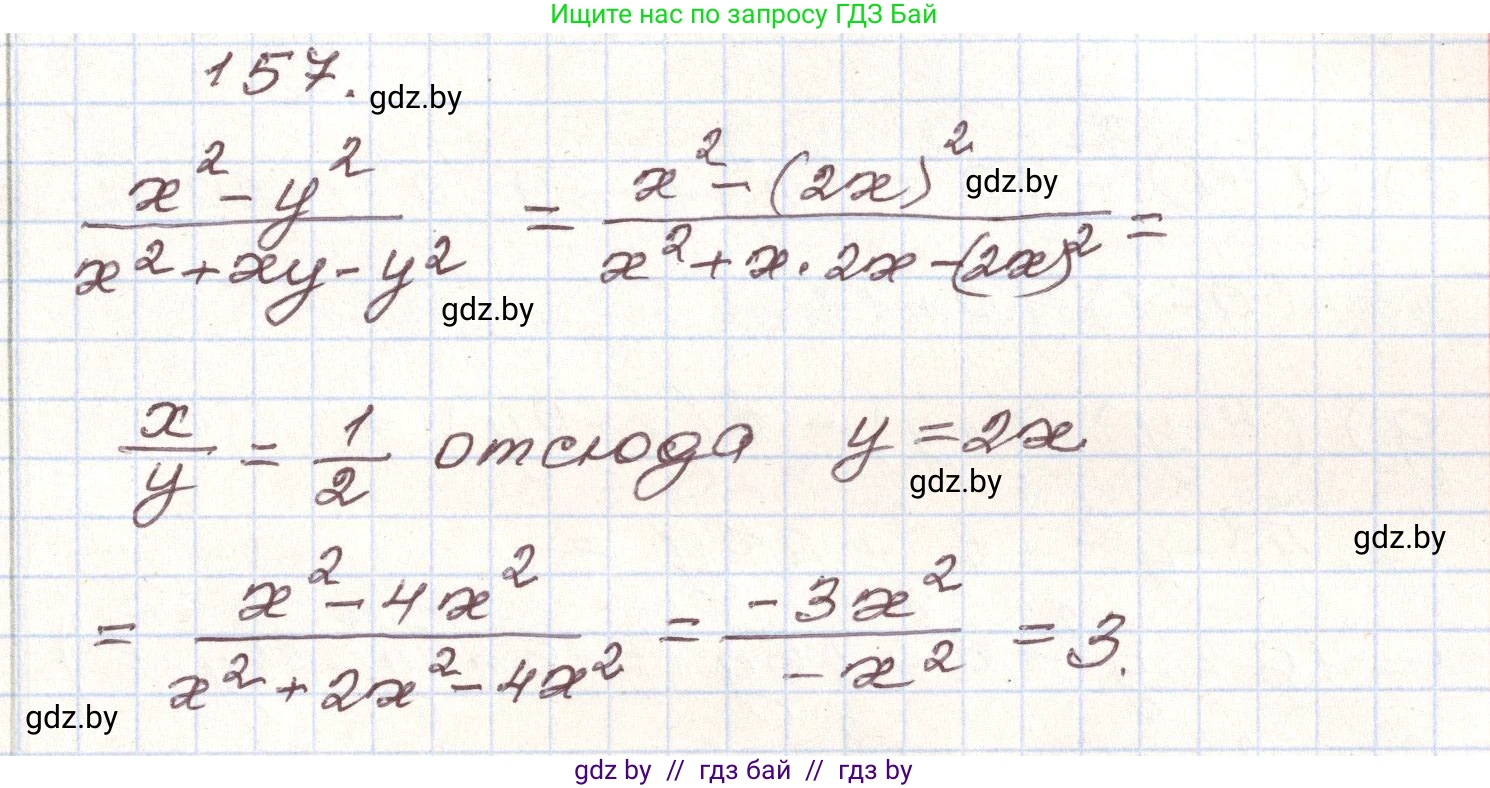 Ищите нас по запросу ГДЗ Бай
157.
gdz.by
x² - y² / x² + xy - y² = x² - (2x)² / x² + x · 2x - (2x)² =
gdz.by
gdz.by
x/y = 1/2 отсюда y = 2x
gdz.by
gdz.by
= x² - 4x² / x² + 2x² - 4x² = -3x² / -x² = 3.
gdz.by
gdz by // гдз бай // гдз by